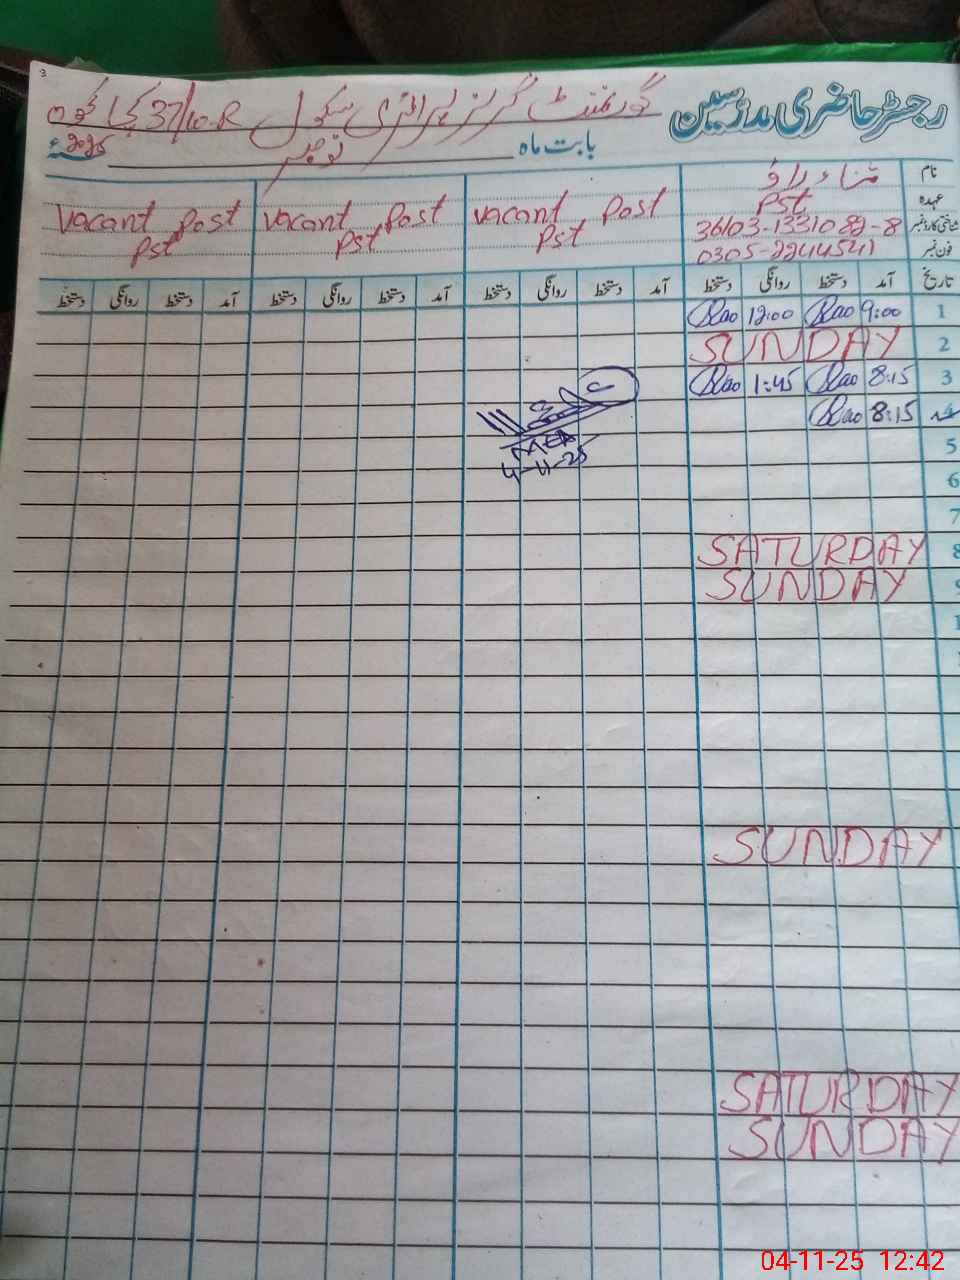 رجسٹر حاضری مدرسین
گورنمنٹ گرلز پرائمری سکول 37/10-R کچا کھوہ
بابت ماہ نومبر 2025ء
نام ثناء راؤ
عہدہ Pst Vacant Post Pst Vacant Post Pst Vacant Post Pst
شناختی کارڈ نمبر 36103-1331082-8
فون نمبر 0305-2244541
تاریخ آمد دستخط روانگی دستخط آمد دستخط روانگی دستخط آمد دستخط روانگی دستخط آمد دستخط روانگی دستخط
1 9:00 Rao 12:00 Rao
2 SUNDAY
3 8:15 Rao 1:45 Rao
4 8:15 Rao
MEA
4-11-25
5
6
7
8 SATURDAY
9 SUNDAY
1
1
SUNDAY
SATURDAY
SUNDAY
3
04-11-25 12:42